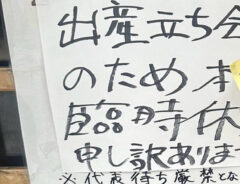 出産立ち会
のため本
臨時休
申し訳ありま
※代表待ち厳禁とな